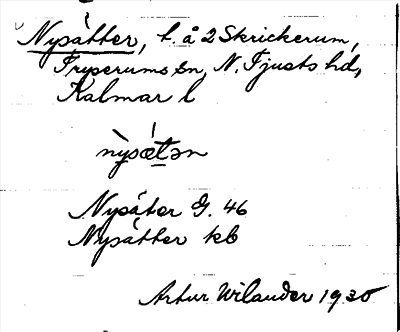 Nysätter, t. å 2 Skrickerum,
Fryserums sn, N. Tjusts hd,
Kalmar l
nỳsæ̀tən
Nysäter G. 46
Nysätter kb
Artur Wilander 1930